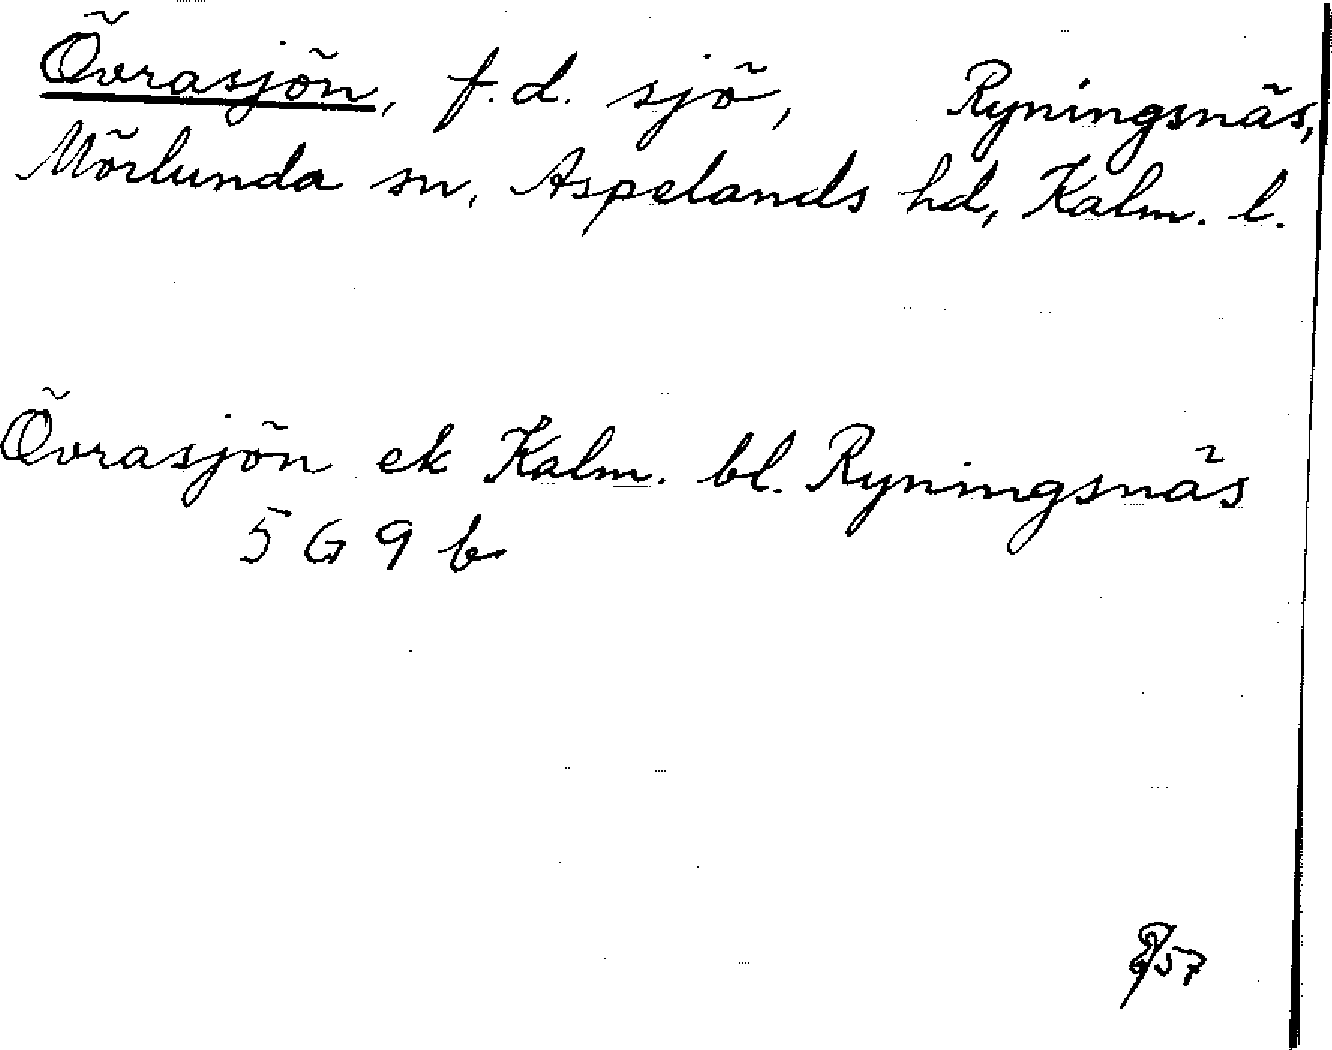 Övrasjön, f.d. sjö, Ryningsnäs,
Mörlunda sn, Aspelands hd, Kalm. l.
Övrasjön ek Kalm. bl. Ryningsnäs
5 G 9 b
57